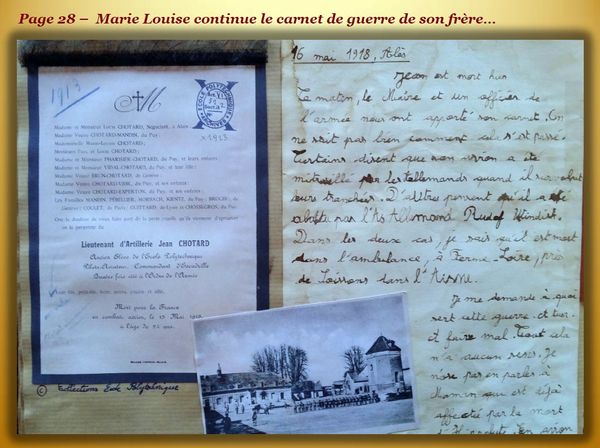 Page 28 – Marie Louise continue le carnet de guerre de son frère...
1913
ECOLE POLYTECHNIQUE
ARCHIVES
X1913
Madame et Monsieur Louis CHOTARD, Négociant, à Alais
Madame Veuve CHOTARD-MANDIN, du Puy ;
Mademoiselle Marie-Louise CHOTARD ;
Messieurs Paul et Louis CHOTARD ;
Madame et Monsieur PHARISIER-CHOTARD, du Puy, et leurs enfants ;
Madame et Monsieur VIDAL-CHOTARD, du Puy, et leur fille ;
Madame Veuve BRUN-CHOTARD, de Genève ;
Madame Veuve CHOTARD du Puy, et ses enfants ;
Madame Veuve CHOTARD-EXPERTON, du Puy, et ses enfants ;
Les Familles MANDIN,
Lieutenant d'Artillerie Jean CHOTARD
Ancien Elève de l'Ecole Polytechnique
Pilote-Aviateur, Commandant d'Escadrille
fois cité à l'Ordre de l'Armée
Mort pour la France
en combat aérien, le 15 Mai 1918
à l'âge de 24 ans.
© Collections Ecole Polytechnique
16 mai 1918, Alès
Jean est mort hier
Ce matin, le Maire et un officier de
l'armée nous ont apporté son carnet. On
ne sait pas bien comment cela s'est passé.
Certains disent que son avion a été
mitraillé par les allemands quand il survolait
leurs tranchées. D'autres pensent qu'il a été
abattu par l'As Allemand Rudolf Windisch.
Dans les deux cas, je sais qu'il est mort
dans l'ambulance, à Ferme-Loire, près
de Soissons dans l'Aisne.
Je me demande à quoi
sert cette guerre. A tuer
et faire mal. Tout cela
n'a aucun sens. Je
n'ose pas en parler à
Maman qui est déjà
affectée par la mort